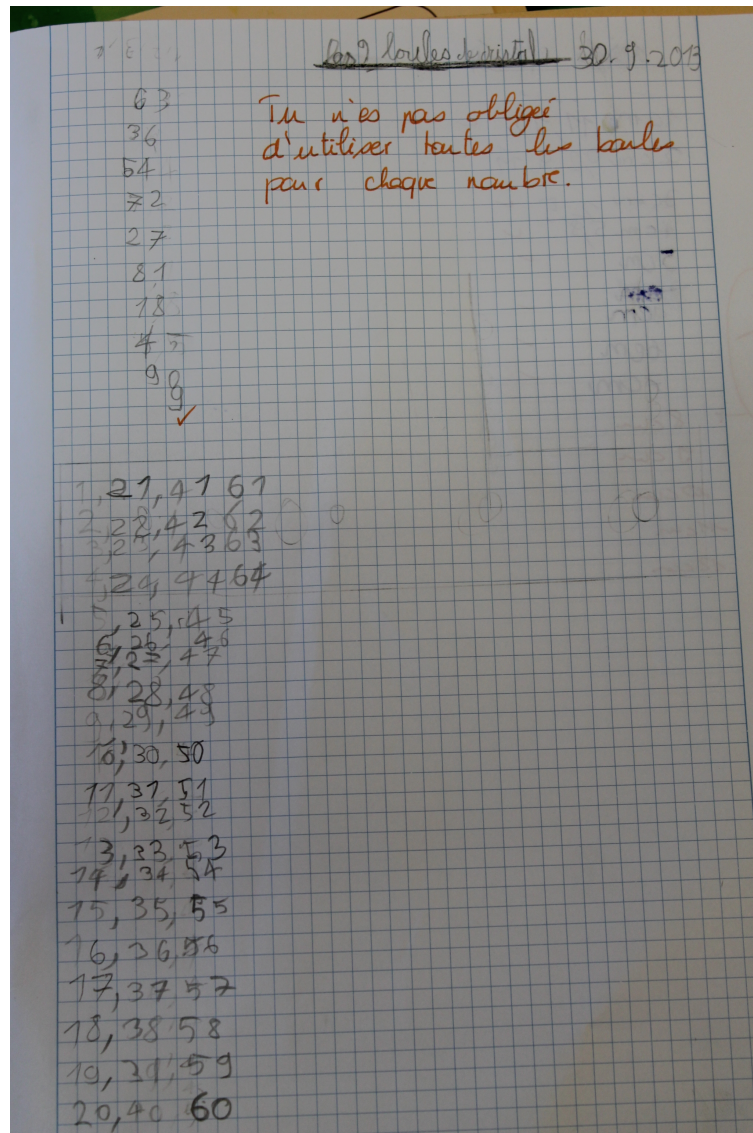 Les 9 boules de cristal 30.9.2013
63
Tu n'es pas obligée
36
d'utiliser toutes les boules
54
pour chaque nombre.
72
27
81
18
45
90
9
1, 21, 41 61
2, 22, 42 62
3, 23, 43 63
4, 24, 44 64
5, 25, 45
6, 26, 46
7, 27, 47
8, 28, 48
9, 29, 49
10, 30, 50
11, 31, 51
12, 32, 52
13, 33, 53
14, 34 54
15, 35, 55
16, 36, 56
17, 37 57
18, 38 58
19, 39, 59
20, 40 60